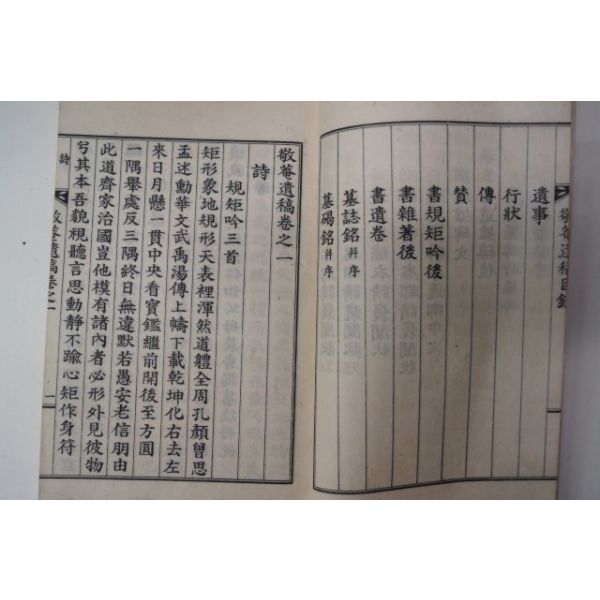 敬菴遺稿目錄
遺事
行狀
傳
贊
書規矩吟後
書雜著後
書遺卷
墓誌銘 幷序
墓碣銘 幷序
敬菴遺稿卷之一
詩
規矩吟三首
矩形象地規形天表裡渾然道軆全周孔顏曾思
孟述勳華文武禹湯傳上幬下載乾坤化右去左
來日月懸一貫中央看寶鑑繼前開後至方圓
一隅擧處反三隅終日無違默若愚安老信朋由
此道齊家治國豈他模有諸內者必形外見彼物
兮其本吾貌視聽言思動靜不踰心矩作身符
詩
敬菴遺稿卷之一
一